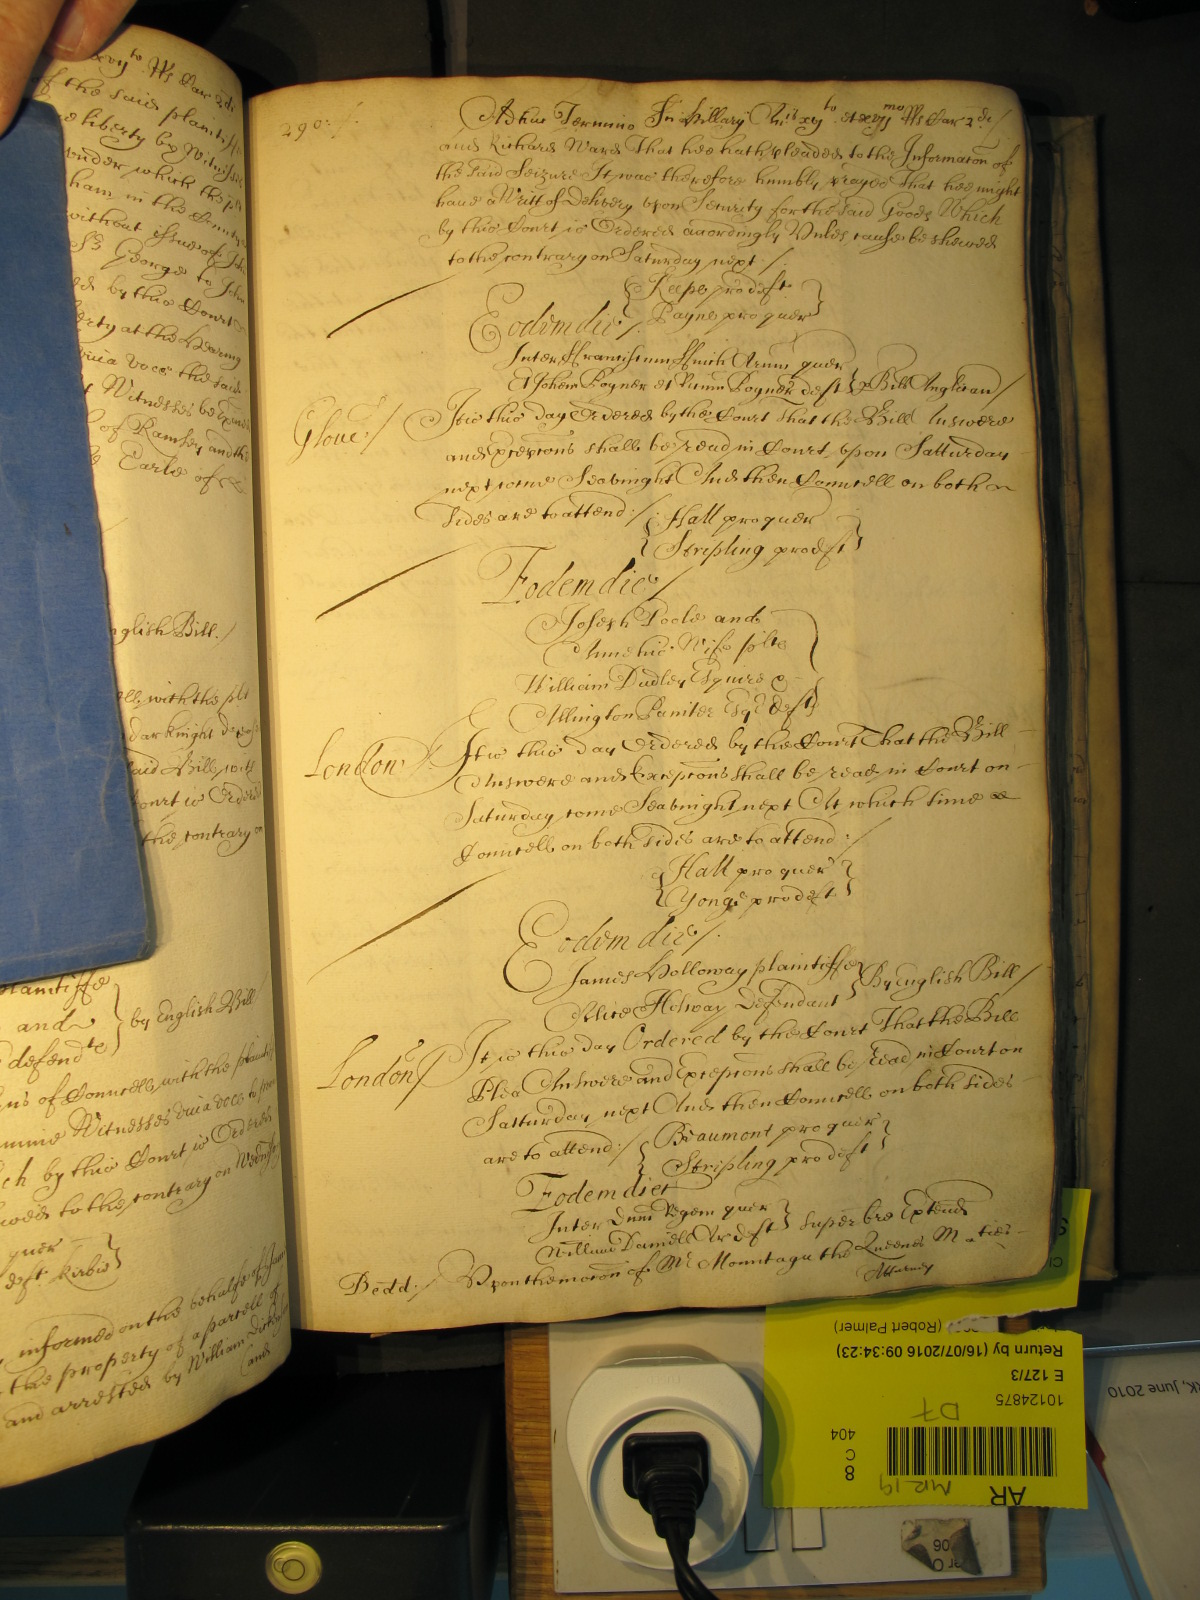 xvjto Rs Car 2di
of the said plaintiffe
liberty by Witnesses
under which the
ham in the County
without issue of
Sr George to John
by this Court
at the Hearing
viva voce the said
Witnesses be
of Ramsey and the
Earle of
English Bill./
with the plt
dar knight
said Bill, with
Court is Ordered
the contrary
plaintiffe
and
defendte
by English Bill
of Councell, with the
Witnesses viva voce to
ch by this Court is Ordered
to the contrary on
quer
deft Kirbie
informed on the behalfe of
the property of a parcell of
and arrested by William
and
290:/.
Adhuc Termino Sti Hillary Annis xvto et xvjmo Rs Car 2di/
and Richard Ward That hee hath pleaded to the Informaton of
the said Seizure It was therefore humbly prayed That hee might
haue a Writt of Delivery vpon Security for the said Goods Which
by this Court is Ordered accordingly Vnles cause be shewed
to the contrary on Saturday next:/
Keepe pro deft
Payne pro quer
Eodem die/.
Inter Franciscum Finch Arum quer
Et Johem Poyner et Poyner deft p Bill Anglican/
Glouc/
It is this day Ordered by the Court that the Bill Answere
and Exceptons shall be read in Court vpon Satturday
next come Seavnight And then Councell on both
sides are to attend:/
Hall pro quer
Stripling pro deft
Eodem die/
Joseph Poole and
Anne his Wife plts
William Dudley Esquire &
Allington Paniter Esqr defts
London/.
It is this day Ordered by the Court That the Bill
Answere and Exceptons shall be read in Court on
Saturday come Seavnight next At which time
Councell on both sides are to attend:/
Hall pro quer
Yonge pro deft
Eodem die/.
James Holloway plaintiffe
Alice Holway Defendant
By English Bill/
London/
It is this day Ordered by the Court That the Bill
Plea Answere and Exceptons shall be read in Court on
Satturday next And then Councell on both sides
are to attend:/
Beaumont pro quer
Stripling pro deft
Eodem die
Inter Dnum Regem quer
William Daniell Ar deft
super bre Extend
Bedd:/
Vpon the moton of Mr Mountagu the Queenes Maties
Attorney
(Robert Palmer)
Return by (16/07/2016 09:34:23)
E 127/3
10124875
D7
404
C
8
MR19
AR
RK, June 2010
06